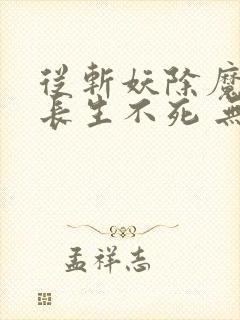 從斬妖除魔
長生不死 無
孟祥志